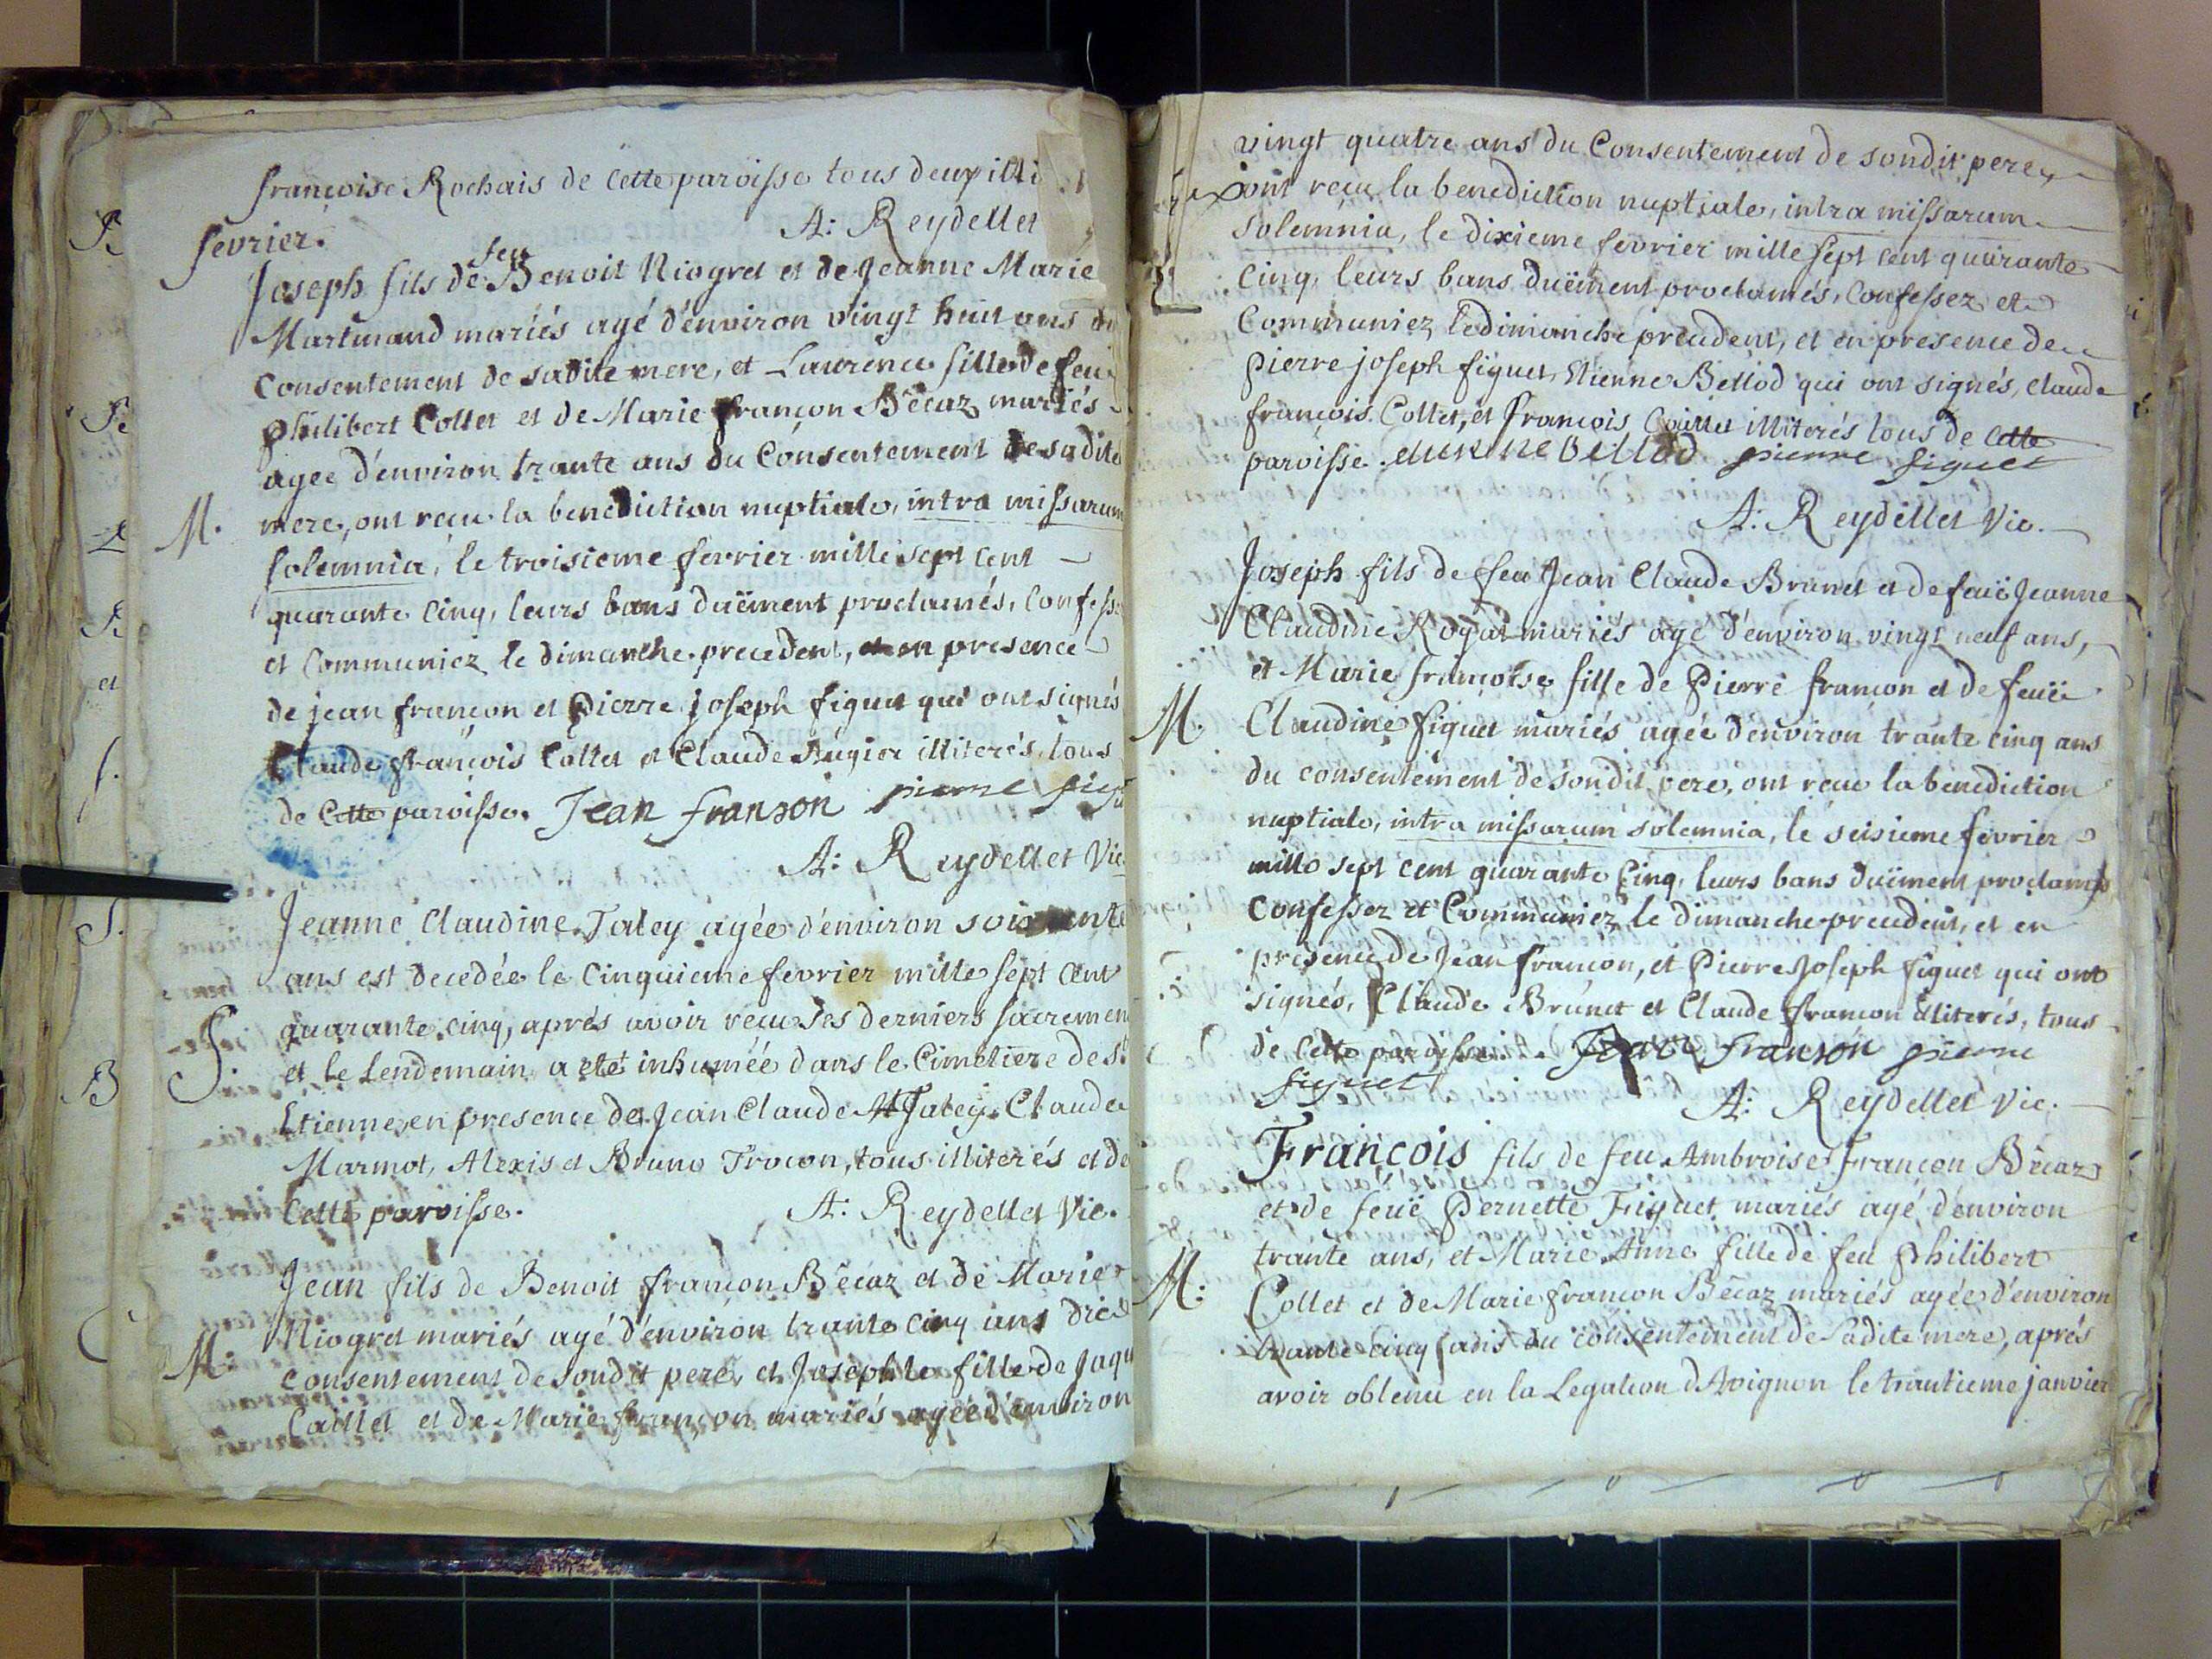 françoise Rochais de Cette paroisse tous deux
A: Reydellet
fevrier.
feu
Joseph fils de Benoit Niogret et de Jeanne Marie
Martinand mariés agé d'environ vingt huit ans du
Consentement de sadite mere, et Laurence fille de feu
philibert Collet et de Marie françon Bécaz mariés
agée d'environ trante ans du Consentement de sadite
M. mere, ont reçu la benediction nuptiale, intra missarum
solemnia, le troisieme fevrier mille sept cent
quarante Cinq, leurs bans duëment proclamés, Confess
et Communiez le dimanche precedent, et en presence
de jean françon et Pierre joseph figuet qui ont signés
Claude françois Collet et Claude Augier illiterés, tous
de Cette paroisse. Jean franson pierre figu
A: Reydellet Vic.
Jeanne Claudine Taley agée d'environ soixante
ans est decedée le Cinquieme fevrier mille sept Cent
quarante cinq, aprés avoir reçu ses derniers sacremen
S. et le Lendemain a eté inhumée dans le Cimetiere de St
Etienne, en presence de Jean Claude Taley, Claude
Marmot, Alexis et Bruno Trocon, tous illiterés et de
Cette paroisse. A: Reydellet Vic.
Jean fils de Benoit françon Bécaz et de Marie
Niogret mariés agé d'environ trante Cinq ans
M: consentement de sondit pere, et Josephte fille de Jaqu
Caillet et de Marie françon mariés agée d'environ
vingt quatre ans du Consentement de sondit pere,
ont reçu la benediction nuptiale, intra missarum
solemnia, le dixieme fevrier mille sept cent quarante
Cinq, leurs bans duëment proclamés, Confessez et
Communiez le dimanche precedent, et en presence de
pierre joseph figuet, Etienne Bellod qui ont signés, Claude
françois Collet, et françois Caillet illiterés tous de Cette
paroisse. etienne bellod pierre figuet
A: Reydellet Vic.
Joseph fils de feu Jean Claude Brunet et de feuë Jeanne
Claudine Royat mariés agé d'environ vingt neuf ans,
et Marie françoise fille de Pierre françon et de feuë
M. Claudine figuet mariés agée d'environ trante cinq ans
du consentement de sondit pere, ont reçu la benediction
nuptiale, intra missarum solemnia, le seisieme fevrier
mille sept cent quarante Cinq, leurs bans duëment proclamés
Confessez et Communiez le dimanche precedent, et en
presence de Jean françon, et Pierre Joseph figuet qui ont
signés, Claude Brunet et Claude françon illiterés, tous
de Cette paroisse. Jean franson pierre
figuet
A: Reydellet Vic.
François fils de feu Ambroise françon Bécaz
et de feuë Pernette Figuet mariés agé d'environ
trante ans, et Marie Anne fille de feu Philibert
M: Collet et de Marie françon Bécaz mariés agée d'environ
trante cinq ans du consentement de sadite mere, aprés
avoir obtenu en la Legation d'Avignon le trantieme janvier